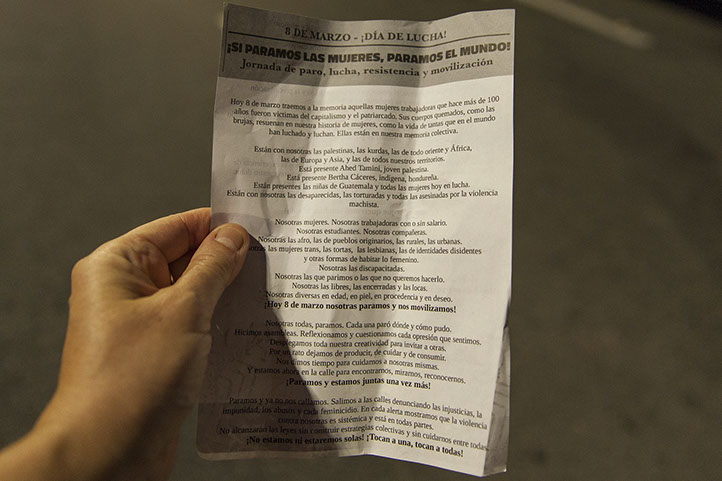 8 DE MARZO - ¡DÍA DE LUCHA!
¡SI PARAMOS LAS MUJERES, PARAMOS EL MUNDO!
Jornada de paro, lucha, resistencia y movilización
Hoy 8 de marzo traemos a la memoria aquellas mujeres trabajadoras que hace más de 100
años fueron víctimas del capitalismo y el patriarcado. Sus cuerpos quemados, como las
brujas, resuenan en nuestra historia de mujeres, como la vida de tantas que en el mundo
han luchado y luchan. Ellas están en nuestra memoria colectiva.
Están con nosotras las palestinas, las kurdas, las de todo oriente y África,
las de Europa y Asia, y las de todos nuestros territorios.
Está presente Ahed Tamini, joven palestina.
Está presente Bertha Cáceres, indígena, hondureña.
Están presentes las niñas de Guatemala y todas las mujeres hoy en lucha.
Están con nosotras las desaparecidas, las torturadas y todas las asesinadas por la violencia
machista.
Nosotras mujeres. Nosotras trabajadoras con o sin salario.
Nosotras estudiantes. Nosotras compañeras.
Nosotras las afro, las de pueblos originarios, las rurales, las urbanas.
las mujeres trans, las tortas, las lesbianas, las de identidades disidentes
y otras formas de habitar lo femenino.
Nosotras las discapacitadas.
Nosotras las que parimos o las que no queremos hacerlo.
Nosotras las libres, las encerradas y las locas.
Nosotras diversas en edad, en piel, en procedencia y en deseo.
¡Hoy 8 de marzo nosotras paramos y nos movilizamos!
Nosotras todas, paramos. Cada una paró dónde y cómo pudo.
Hicimos asambleas. Reflexionamos y cuestionamos cada opresión que sentimos.
Desplegamos toda nuestra creatividad para invitar a otras.
Por un rato dejamos de producir, de cuidar y de consumir.
Nos dimos tiempo para cuidarnos a nosotras mismas.
Y estamos ahora en la calle para encontrarnos, mirarnos, reconocernos.
¡Paramos y estamos juntas una vez más!
Paramos y ya no nos callamos. Salimos a las calles denunciando las injusticias, la
impunidad, los abusos y cada feminicidio. En cada alerta mostramos que la violencia
contra nosotras es sistémica y está en todas partes.
No alcanzarán las leyes sin construir estrategias colectivas y sin cuidarnos entre todas.
¡No estamos ni estaremos solas! ¡Tocan a una, tocan a todas!